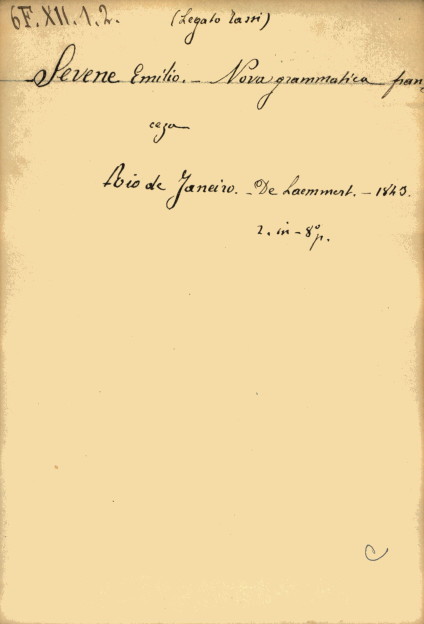 6F.XII.1.2. (Legato Tassi)
Sevene Emilio. - Nova grammatica fran,
ceza
Rio de Janeiro. - De Laemmert. - 1843.
2. in - 8° p.
C